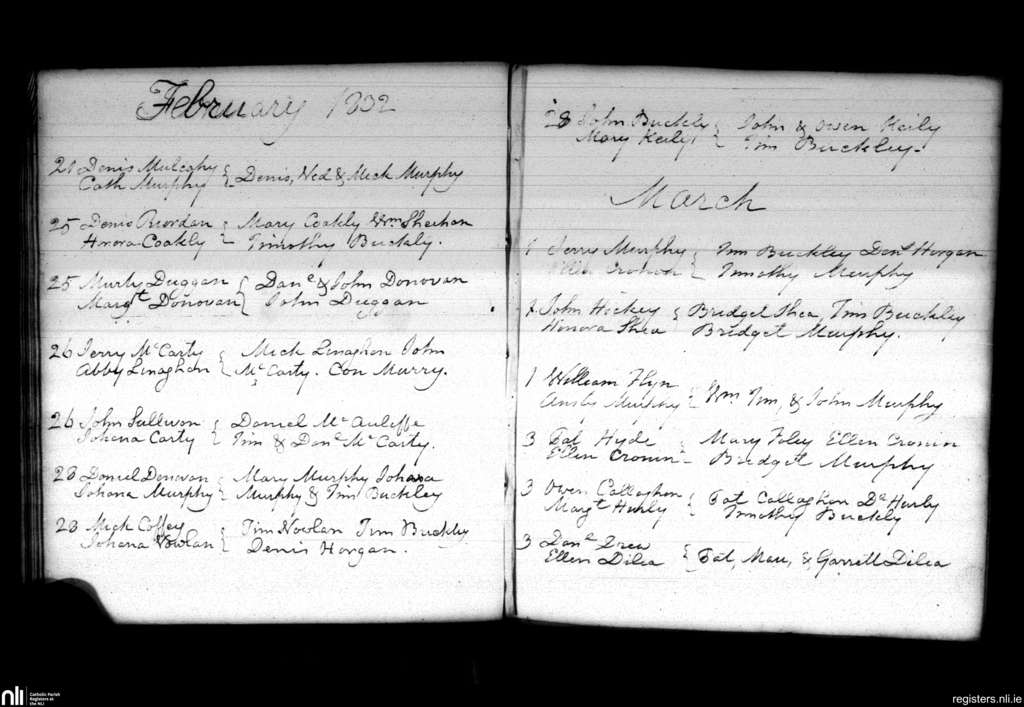 February 1832
21 Denis Mulcahy { Denis, Ned & Mick Murphy
Cath Murphy
25 Denis Riordan { Mary Coakly Wm Sheehan
Hnora Coakly Timothy Buckly.
25 Murty Duggan { Danl & John Donovan
Margt Donovan { John Duggan
26 Jerry McCarty { Mick Linaghan John
Abby Linaghan { McCarty. Con Murry.
26 John Sullivan { Daniel McAuleffe
Johana Carty { Tim & Danl McCarty.
28 Daniel Donovan { Mary Murphy Johana
Johana Murphy { Murphy & Tim Buckley
28 Mick Coffey { Tim Nowlan Tim Buckley
Johana Nowlan { Denis Horgan.
28 John Buckly { John & Owen Keily
Mary Keily { Tim Buckley.
March
1 Jerry Murphy { Tim Buckley Denl Horgan
Ellen { Timothy Murphy
1 John Hickey { Bridget Shea, Tim Buckley
Honora Shea Bridget Murphy.
1 William Flyn { Wm Tim, & John Murphy
Murphy
3 Pat Hyde { Mary Foley Ellen Cronin
Ellen Cronin Bridget Murphy
3 Owen Callaghan { Pat Callaghan Dl Hurly
Margt Hurly { Timothy Buckly
3 Danl { Pat, Mau, & Garrett Dilea
Ellen Dilea
nli
Catholic Parish
Registers at
the NLI
registers.nli.ie